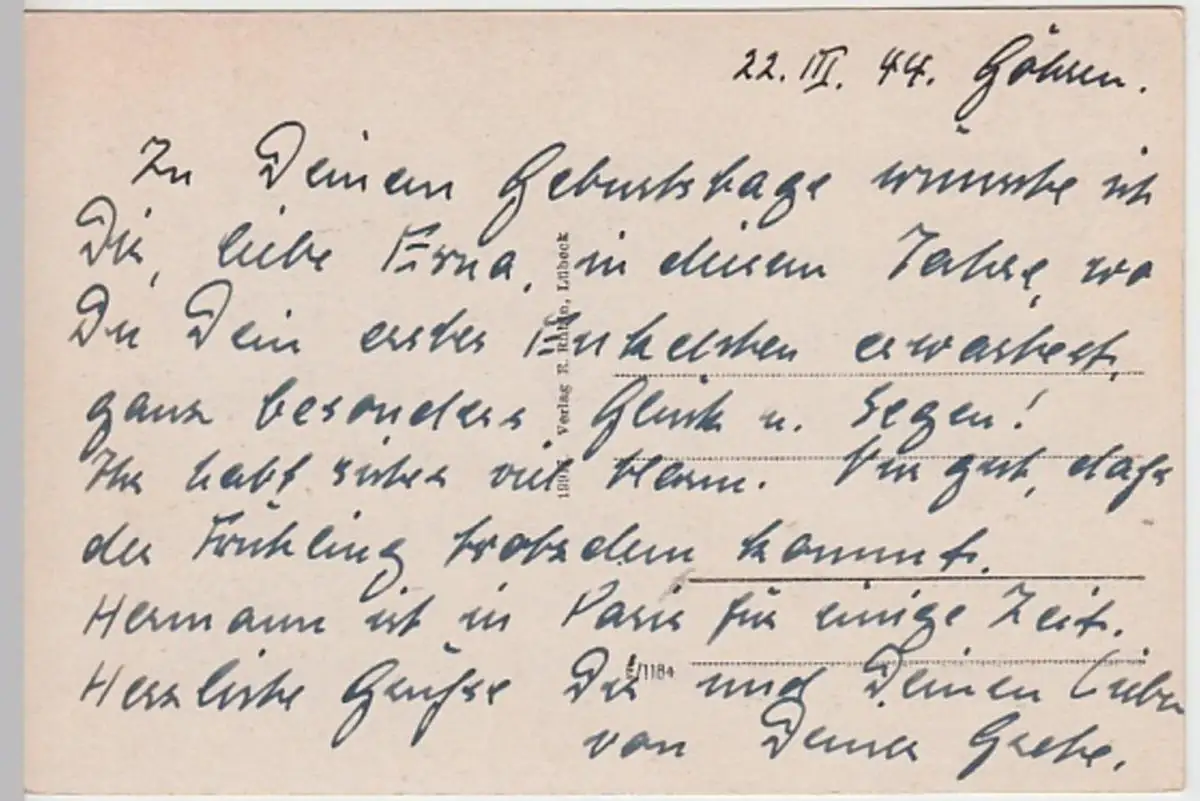 22. III. 44. Göhren.
Zu Deinem Geburtstage wünsche ich
Dir, liebe Erna, in diesem Jahre, wo
Du Dein erstes Enkelchen erwartest,
ganz besonders Glück u. Segen!
Ihr habt sicher viel Alarm. Nur gut, daß
der Frühling trotzdem kommt.
Hermann ist in Paris für einige Zeit.
Herzliche Grüße Dir und Deinen Lieben
von Deiner Grete.
Verlag R. Lübeck
1184